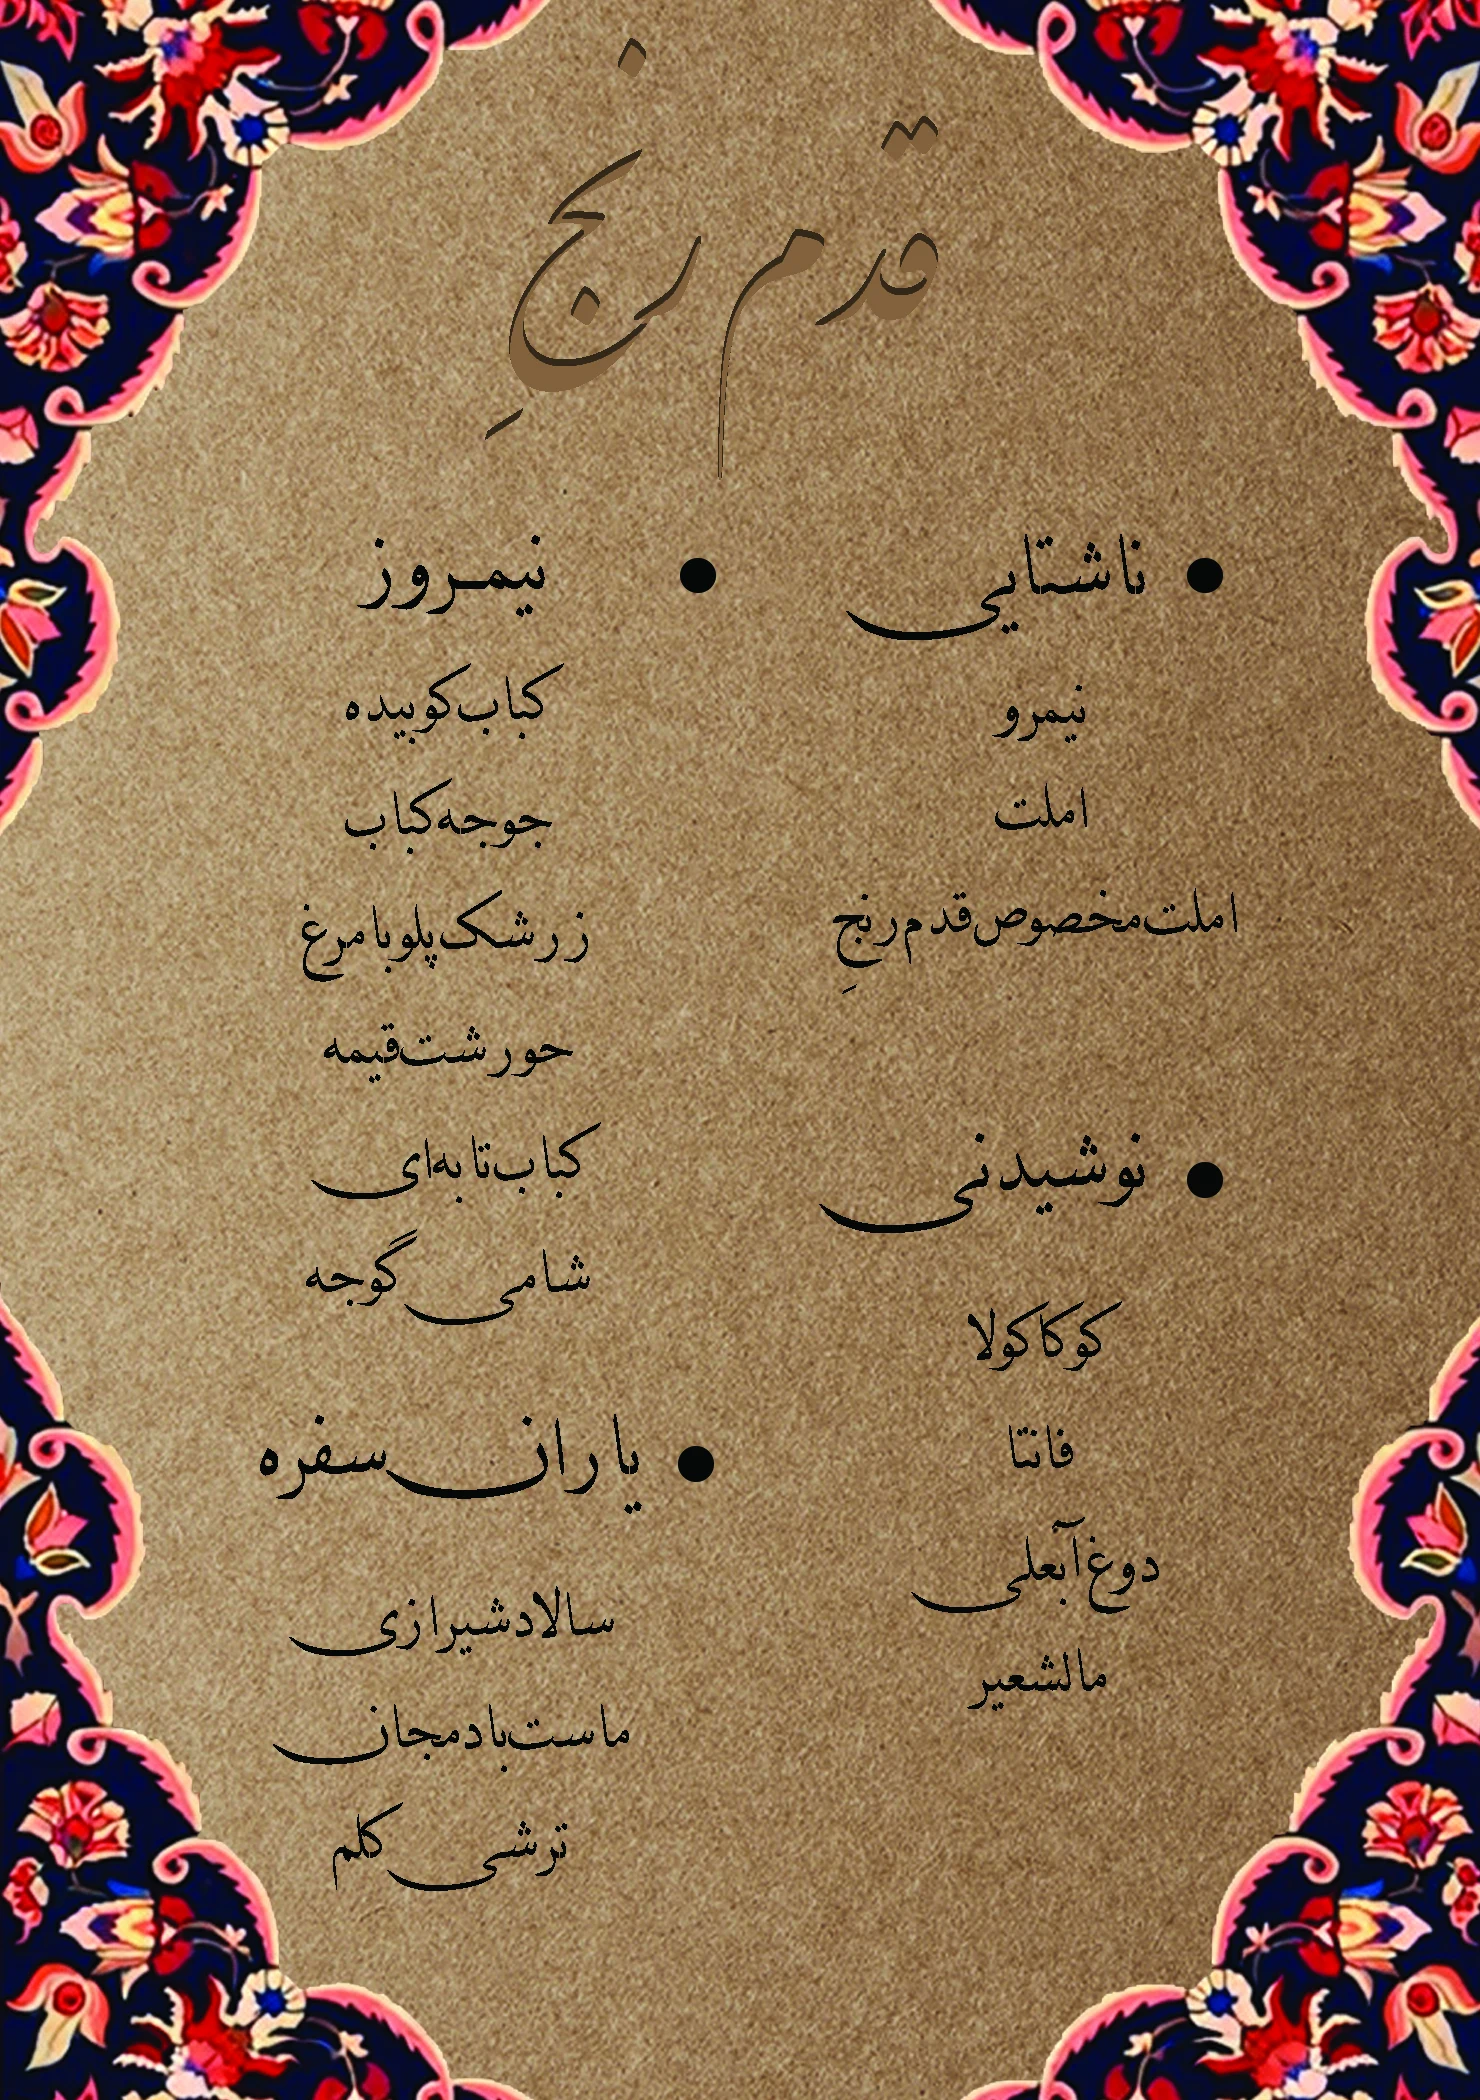 قدم رنجِ
ناشتایی
نیمرو
املت
املت مخصوص قدم رنجِ
نوشیدنی
کوکاکولا
فانتا
دوغ آبعلی
مالشعیر
نیمروز
کباب کوبیده
جوجه کباب
زرشک پلو با مرغ
حورشت قیمه
کباب تابه ای
شامی گوجه
یاران سفره
سالاد شیرازی
ماست بادمجان
ترشی کلم